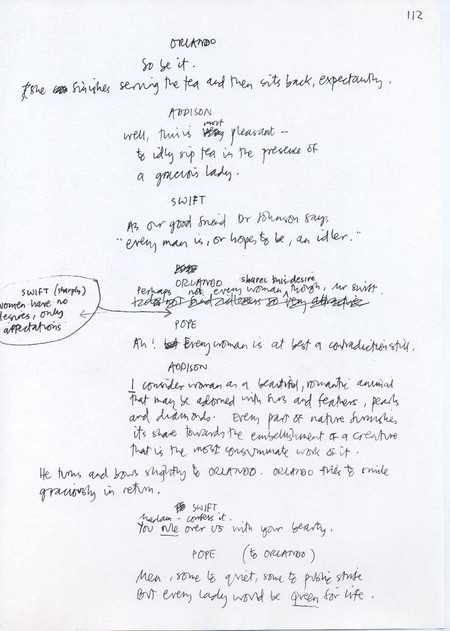 112
ORLANDO
So be it.
She finishes serving the tea and then sits back, expectantly.
ADDISON
Well, this is most pleasant –
to idly sip tea in the presence of
a gracious lady.
SWIFT
As our good friend Dr Johnson says
"every man is, or hopes to be, an idler."
ORLANDO
Perhaps not every woman shares this desire though, Mr Swift.
SWIFT (sharply)
Women have no
desires, only
affectations
POPE
Ah! but Every woman is at best a contradiction still.
ADDISON
I consider woman as a beautiful, romantic animal
that may be adorned with furs and feathers, pearls
and diamonds. Every part of nature furnishes
its share towards the embellishment of a creature
that is the most consummate work of it.
He turns and bows slightly to ORLANDO. ORLANDO tries to smile
graciously in return.
SWIFT
Madam - confess it.
You rule over us with your beauty.
POPE (to ORLANDO)
Men, some to quiet, some to public strife
But every lady would be queen for life.